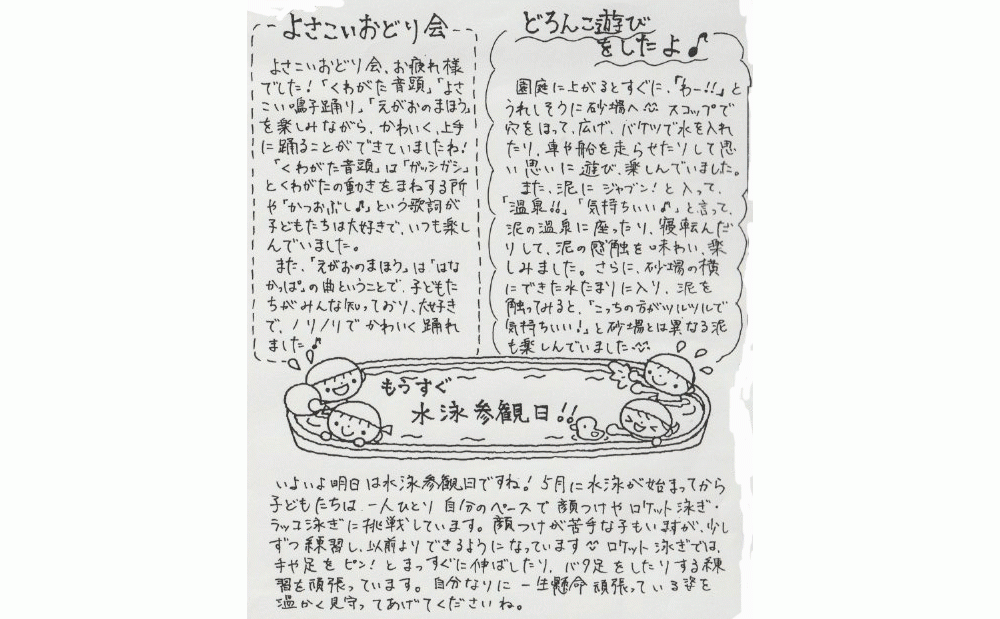 よさこいおどり会
よさこいおどり会、お疲れ様
でした!「くわがた音頭」「よさ
こい鳴子踊り」「えがおのまほう」
を楽しみながら、かわいく、上手
に踊ることができていましたね!
「くわがた音頭」は「ガッシガシ」
とくわがたの動きをまねする所
や「かつおぶし♪」という歌詞が
子どもたちは大好きで、いつも楽し
んでいました。
また、「えがおのまほう」は「はな
かっぱ」の曲ということで、子どもた
ちがみんな知っており、大好き
で、ノリノリでかわいく踊れ
ました♪
どろんこ遊び
をしたよ♪
園庭に上がるとすぐに、「わー!!」と
うれしそうに砂場へ スコップで
穴をほって、広げ、バケツで水を入れ
たり、車や船を走らせたりして思
い思いに遊び、楽しんでいました。
また、泥にジャブン!と入って、
「温泉!!」「気持ちいい♪」と言って、
泥の温泉に座ったり、寝転んだ
りして、泥の感触を味わい、楽
しみました。さらに、砂場の横
にできた水たまりに入り、泥を
触ってみると、「こっちの方がツルツルで
気持ちいい!」と砂場とは異なる泥
も楽しんでいました
もうすぐ
水泳参観日!!
いよいよ明日は水泳参観日ですね!5月に水泳が始まってから
子どもたちは一人ひとり自分のペースで顔つけやロケット泳ぎ・
ラッコ泳ぎに挑戦しています。顔つけが苦手な子もいますが、少し
ずつ練習し、以前よりできるようになっています ロケット泳ぎでは、
手や足をピン!とまっすぐに伸ばしたり、バタ足をしたりする練
習を頑張っています。自分なりに一生懸命頑張っている姿を
温かく見守ってあげてくださいね。